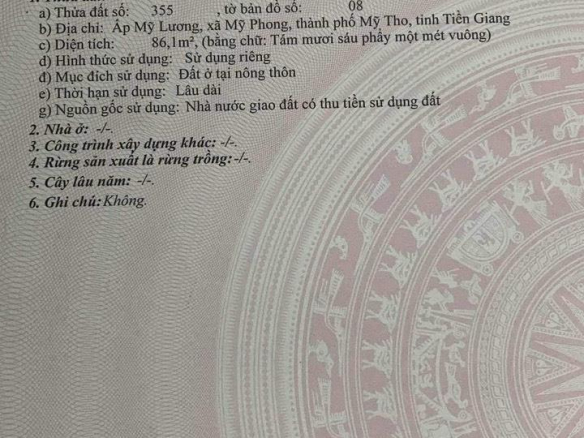 a) Thửa đất số: 355 , tờ bản đồ số: 08
b) Địa chỉ: Ấp Mỹ Lương, xã Mỹ Phong, thành phố Mỹ Tho, tỉnh Tiền Giang
c) Diện tích: 86,1m², (bằng chữ: Tám mươi sáu phẩy một mét vuông)
d) Hình thức sử dụng: Sử dụng riêng
đ) Mục đích sử dụng: Đất ở tại nông thôn
e) Thời hạn sử dụng: Lâu dài
g) Nguồn gốc sử dụng: Nhà nước giao đất có thu tiền sử dụng đất
2. Nhà ở: -/-.
3. Công trình xây dựng khác: -/-.
4. Rừng sản xuất là rừng trồng: -/-.
5. Cây lâu năm: -/-.
6. Ghi chú: Không.